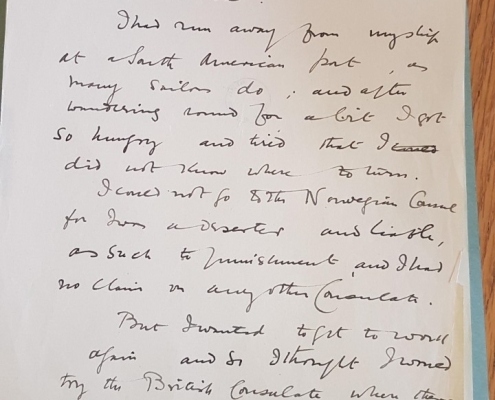 I had run away from my ship
at a South American port, as
many sailors do; and after
wandering round for a bit I got
so hungry and tired that I could
did not know where to turn.
I could not go to the Norwegian Consul
for I was a deserter and liable,
as such to punishment, and I had
no claim on any other Consulate.
But I wanted to get to work
again and so I thought I would
try the British Consulate where